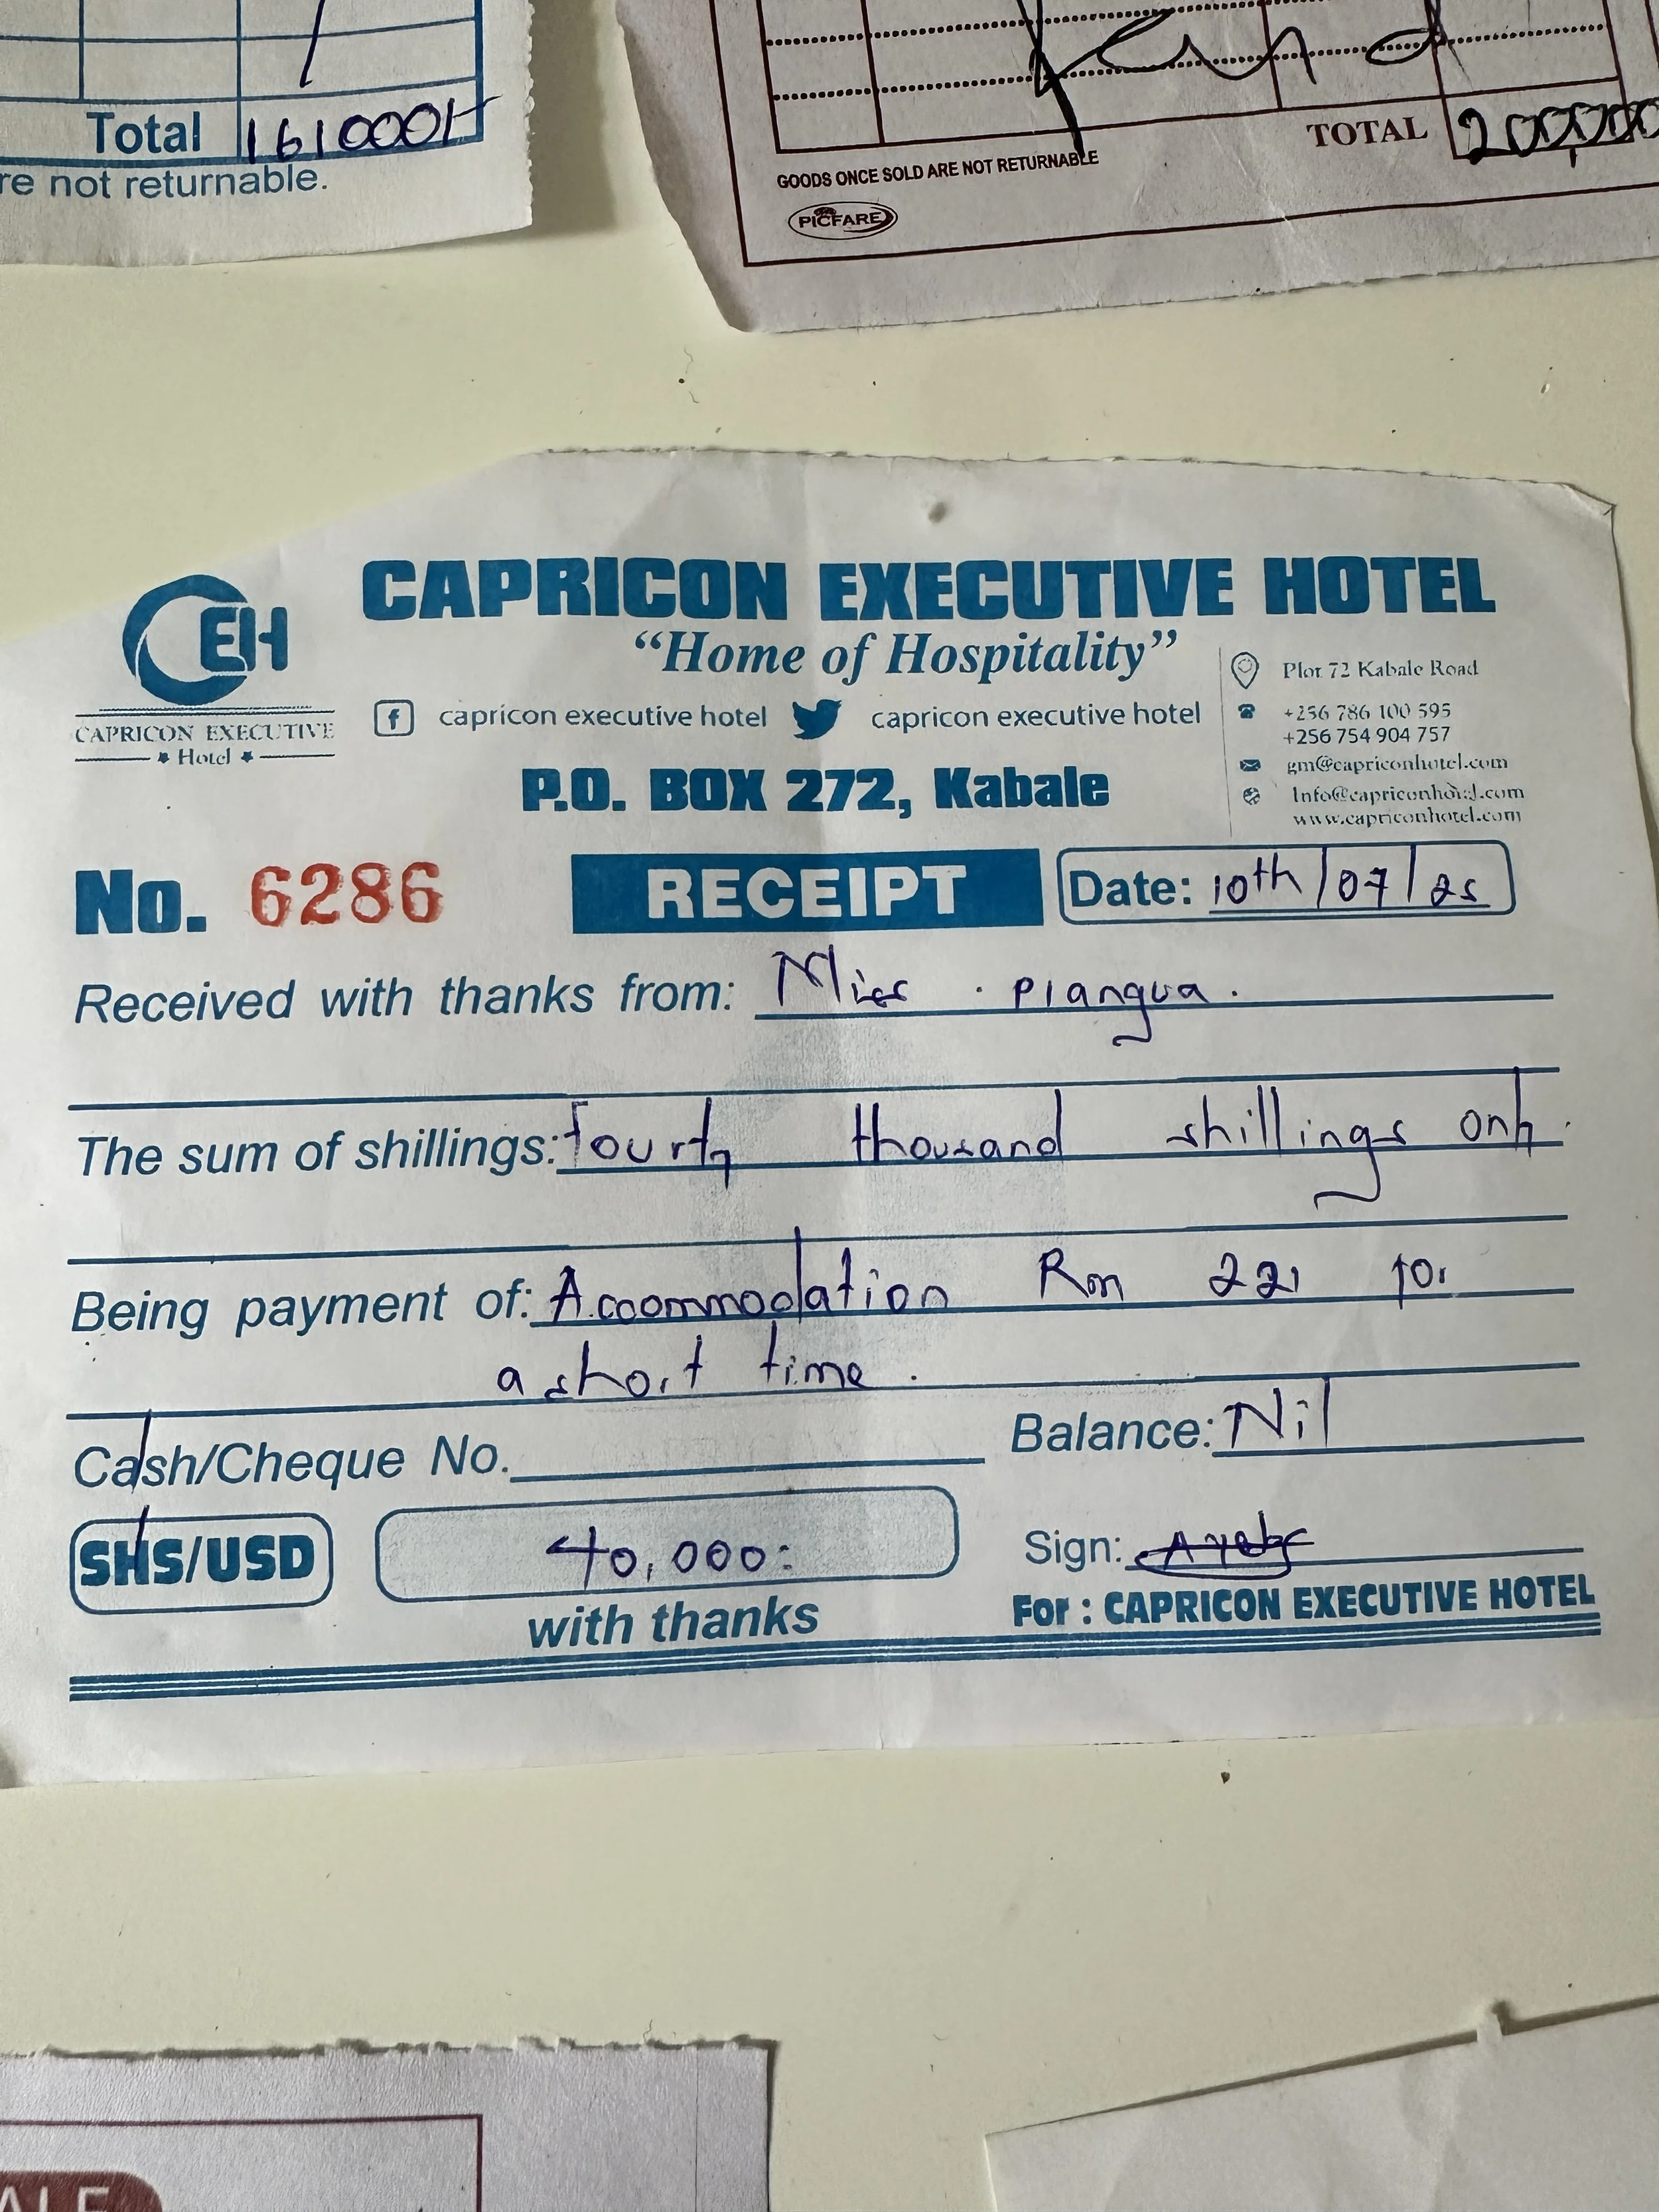 Total 161000/-
re not returnable.
TOTAL
GOODS ONCE SOLD ARE NOT RETURNABLE
PICFARE
CEH
CAPRICON EXECUTIVE
Hotel
CAPRICON EXECUTIVE HOTEL
“Home of Hospitality”
capricon executive hotel capricon executive hotel
P.O. BOX 272, Kabale
Plot 72 Kabale Road
+256 786 100 595
+256 754 904 757
gm@capriconhotel.com
Info@capriconhotel.com
www.capriconhotel.com
No. 6286 RECEIPT Date: 10th/07/25
Received with thanks from: Miss . Plangua .
The sum of shillings: fourty thousand shillings only.
Being payment of: Accommodation Rm 221 for
a short time .
Cash/Cheque No. Balance: Nil
SHS/USD 40,000= Sign:
with thanks For : CAPRICON EXECUTIVE HOTEL
ALE